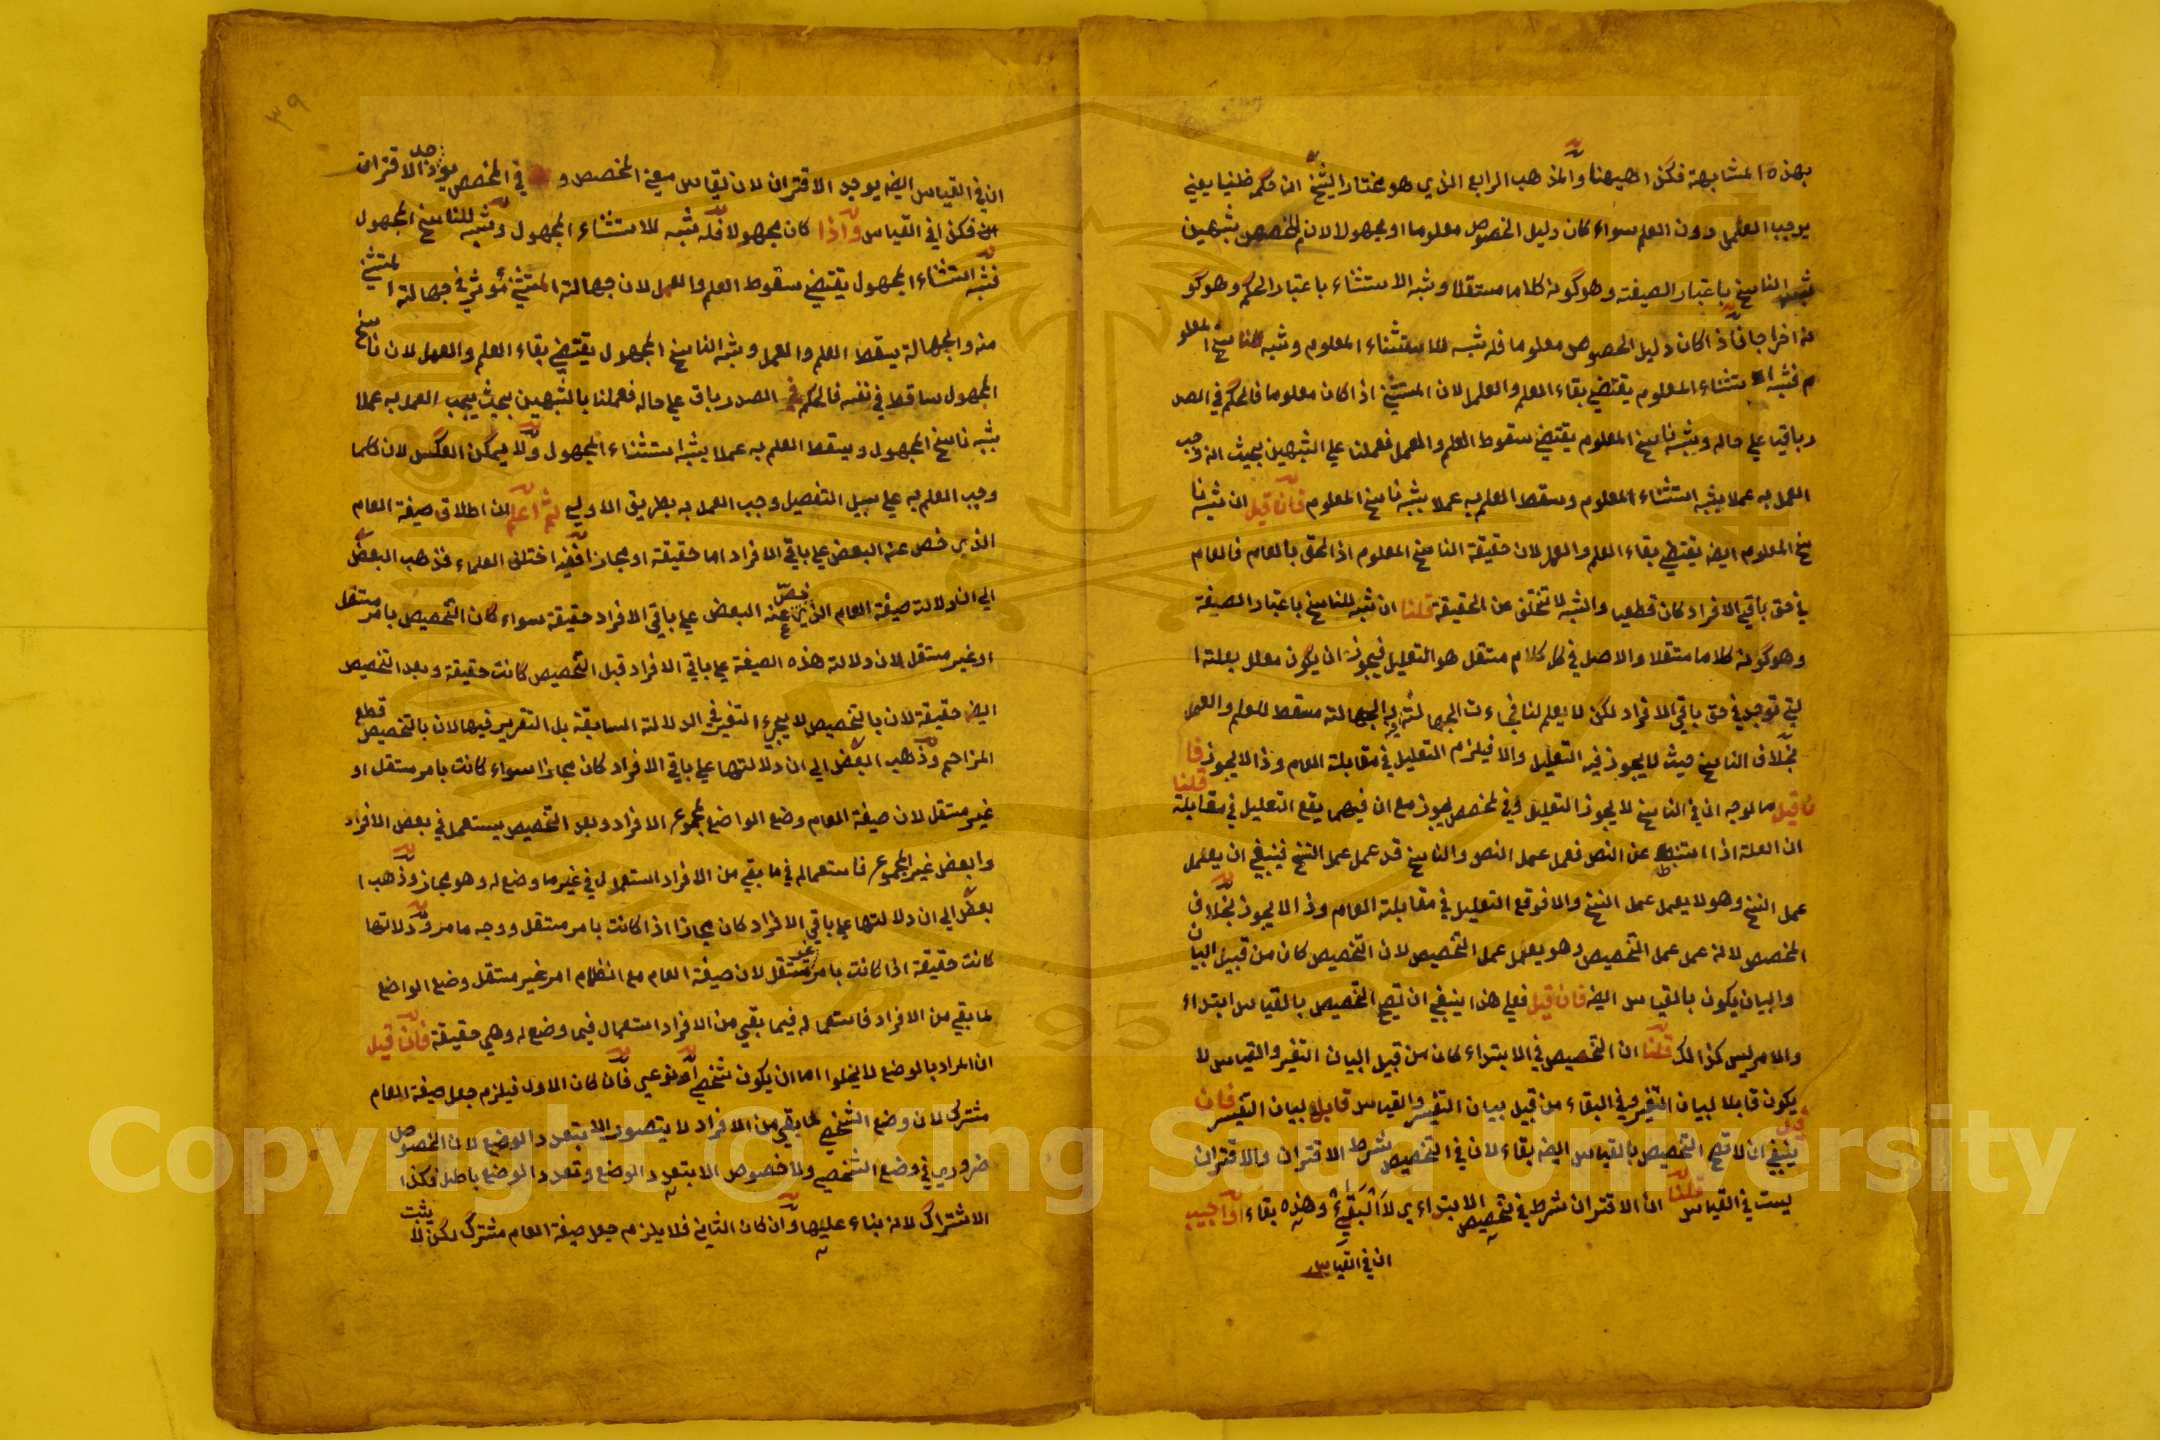 بهذه المشابهة فكذا ههنا والمذهب الرابع الذي هو مختار الشيخ ان حكمه ظنيا يعني
يوجب العمل دون العلم سواء كان دليل الخصوص معلوما او مجهولا لان المخصص بشبهين
شبه الناسخ باعتبار الصيغة وهو كونه كلاما مستقلا وشبه الاستثناء باعتبار الحكم وهو كو
نه اخراجا فاذا كان دليل الخصوص معلوما فله شبه للاستثناء المعلوم وشبه للناسخ المعلو
م فشبه استثناء المعلوم يقتضي بقاء العلم والعمل لان المستثنى اذا كان معلوما فالحكم في الصد
ر باقيا على حاله وشبه ناسخ المعلوم يقتضي سقوط العلم والعمل فعملنا على الشبهين بحيث انه وجب
العمل به عملا بشبه استثناء المعلوم وسقط العلم به عملا بشبه ناسخ المعلوم فان قيل ان شبه نا
سخ المعلوم ايضا يقتضي بقاء العلم والعمل لان حقيقة الناسخ المعلوم اذا لحق بالعام فالعام
في حق باقي الافراد كان قطعيا والشبه لا تختلف عن الحقيقة قلنا ان شبه للناسخ باعتبار الصيغة
وهو كونه كلاما مستقلا والاصل في كل كلام مستقل هو التعليل فيجوز ان يكون معلل بعلته ا
لتي توجد في حق باقي الافراد لكن لا يعلم لنا فجاءت الجهالة والجهالة مسقط للعلم والعمل
بخلاف الناسخ حيث لا يجوز فيه التعليل والا فيلزم التعليل في مقابلة العام وذا لا يجوز فا
ن قيل ما لوجه ان في الناسخ لا يجوز التعليل وفي مخصص يجوز مع ان فيهما يقع التعليل في مقابلة قلنا
ان العلة اذا استنبط عن النص فعمل عمل النص والناسخ قد عمل عمل النسخ فينبغي ان يعمل
عمل النسخ وهو لا يعمل عمل النسخ والا فوقع التعليل في مقابلة العام وذا لا يجوز بخلاف
المخصص لانه عمل عمل التخصيص وهو يعمل عمل التخصيص لان التخصيص كان من قبيل البيان
والبيان يكون بالقياس ايضا فان قيل فعلى هذا ينبغي ان تصح التخصيص بالقياس ابتداء
والامر ليس كذالك قلنا ان التخصيص في الابتداء كان من قبيل البيان التغير والقياس لا
يكون قابلا لبيان التغير وفي البقاء من قبيل بيان التفسير والقياس قابل لبيان التفسير فان
قيل ينبغي ان لا تصح التخصيص بالقياس ايضا بقاء لان في التخصيص شرط الاقتران والاقتران
ليست في القياس قلنا ان الاقتران شرط في تخصيص الابتداءي لا البقائي وهذه بقاء اذا جيب
ان في القياس
٣٩
ان في القياس ايضا يوجد الاقتران لان لقياس معنى المخصص و في المخصص يوجد الاقتران
فكذا في القياس واذا كان مجهولا فله شبه للاستثناء المجهول وشبه للناسخ المجهول
فشبه استثناء المجهول يقتضي سقوط العلم والعمل لان جهالة المستثنى مؤثر في جهالة المستثنى
منه والجهالة يسقط العلم والعمل وشبه الناسخ المجهول يقتضي بقاء العلم والعمل لان ناسخ
المجهول ساقط في نفسه فالحكم في الصدر باق على حاله فعملنا بالشبهين بحيث يجب العمل به عملا
بشبه ناسخ المجهول ويسقط العلم به عملا بشبه استثناء المجهول ولا يمكن العكس لان كلما
وجب العلم به على سبيل التفصيل وجب العمل به بطريق الاولي ثم اعلم ان اطلاق صيغة العام
الذي خص عنه البعض على باقي الافراد اما حقيقة او مجازا ففيه اختلف العلماء فذهب البعض
الى ان دلالة صيغة العام الذي خص عنه البعض على باقي الافراد حقيقة سواء كان التخصيص بامر مستقل
او غير مستقل لان دلالة هذه الصيغة على باقي الافراد قبل التخصيص كانت حقيقة وبعد التخصيص
ايضا حقيقة لان بالتخصيص لا يجيء التغير في الدلالة السابقة بل التقرير فيها لان بالتخصيص قطع
المزاحم وذهب البعض الى ان دلالتها على باقي الافراد كان مجازا سواء كانت بامر مستقل او
غير مستقل لان صيغة العام وضع الواضع لمجموع الافراد وبعد التخصيص يستعمل في بعض الافراد
والبعض غير المجموع فاستعماله في ما بقي من الافراد استعمال في غير ما وضع له وهو مجاز وذهب ا
بعض الى ان دلالتها على باقي الافراد كان مجازا اذا كانت بامر مستقل ووجه ما مر ودلالتها
كانت حقيقة اذا كانت بامر غير مستقل لان صيغة العام مع انظمام امر غير مستقل وضع الواضع
لما بقي من الافراد فاستعماله فيما بقي من الافراد استعمال فيما وضع له وهي حقيقة فان قيل
ان المراد بالوضع لا يخلوا اما ان يكون شخصي او نوعي فان كان الاول فيلزم جعل صيغة العام
مشترك لان وضع الشخصي لما بقي من الافراد لا يتصور الا بتعدد الوضع لان الخصوص
ضروري في وضع الشخصي ولا خصوص الا بتعدد الوضع وتعدد الوضع باطل فكذا
الاشتراك لانه بناء عليها وان كان الثاني فلا يلزم جعل صيغة العام مشترك لكن لا يثبت
Copyright © King Saud University